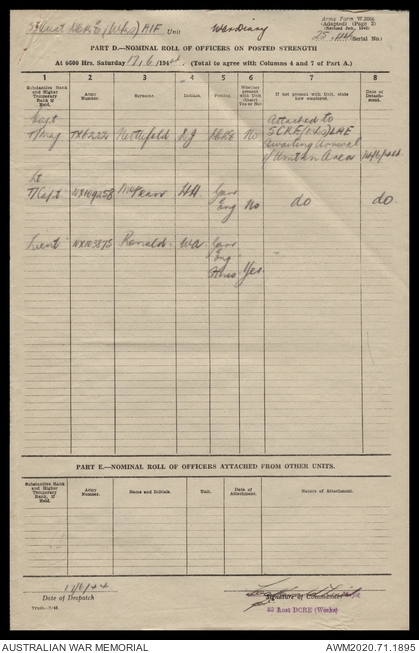 53 Aust DCRE (Wks) AIF Unit War Diary
Army Form W.3008
(Adapted) (Page 2)
(Revised Jan., 1943)
Serial No.)
PART D.—NOMINAL ROLL OF OFFICERS ON POSTED STRENGTH
At 0600 Hrs. Saturday 17/6/1944 (Total to agree with Columns 4 and 7 of Part A.)
1 2 3 4 5 6 7 8
Substantive Rank and Higher Temporary Rank if Held. Army Number. Surname. Initials. Posting. Whether present with Unit (Insert Yes or No) If not present with Unit, state how employed. Date of Detachment.
Capt Attached to
T/Maj Nettlefold DCRE No SCRE (Wks) LAE
awaiting arrival
Area
Lt
T/Capt NX109258 HA Garr Eng No do do
Lieut NX103875 Ronald WA Garr Eng Yes
PART E.—NOMINAL ROLL OF OFFICERS ATTACHED FROM OTHER UNITS.
Substantive Rank and Higher Temporary Rank, if Held. Army Number. Name and Initials. Unit. Date of Attachment. Nature of Attachment.
17/6/44
Date of Despatch
Signature of Commander
53 Aust DCRE (Works)
AUSTRALIAN WAR MEMORIAL AWM2020.71.1895